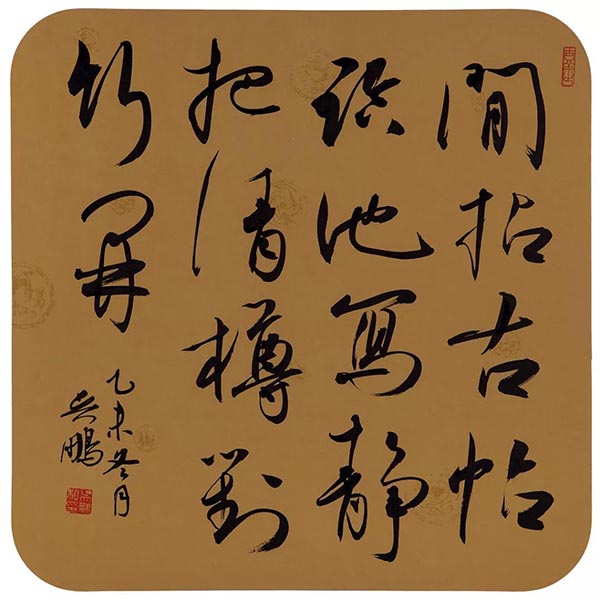 閒拈古帖
臨池寫静
把清樽對
竹開
乙未冬月
吴鵬